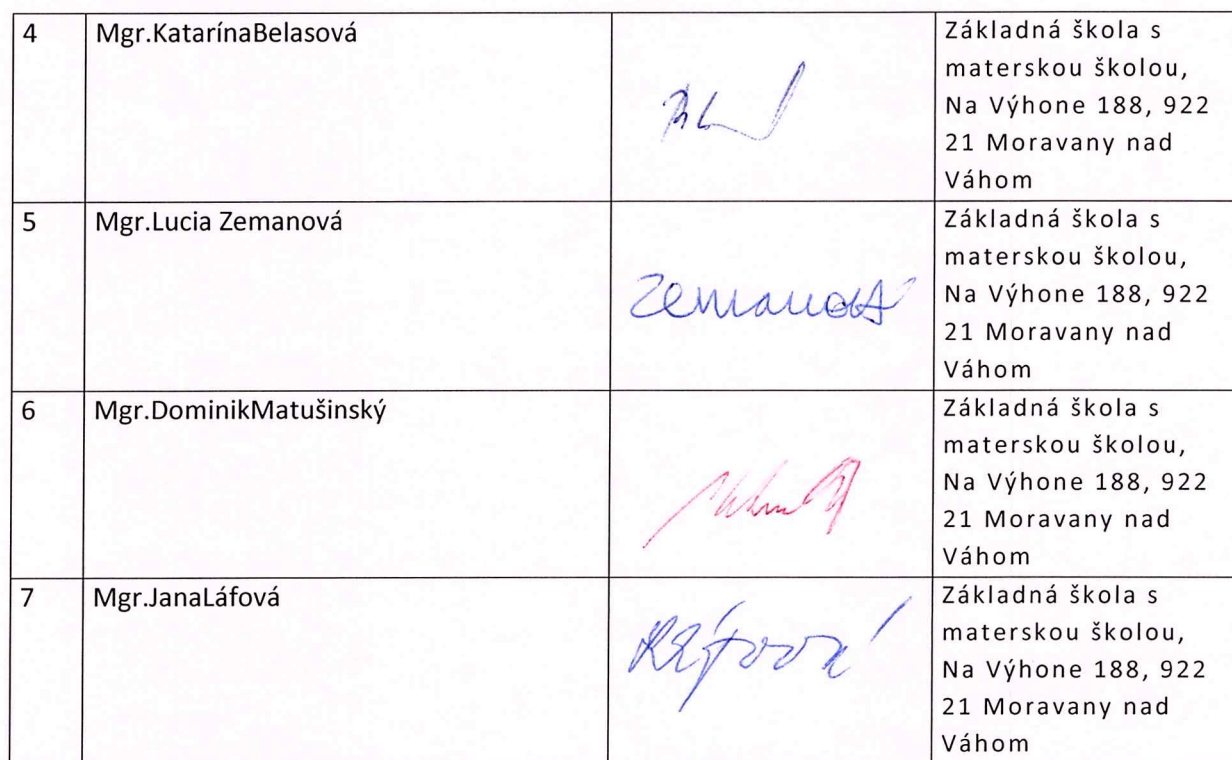 4 Mgr.KatarínaBelasová Základná škola s
materskou školou,
Na Výhone 188, 922
21 Moravany nad
Váhom
5 Mgr.Lucia Zemanová Základná škola s
materskou školou,
Na Výhone 188, 922
21 Moravany nad
Váhom
Zemanová
6 Mgr.DominikMatušinský Základná škola s
materskou školou,
Na Výhone 188, 922
21 Moravany nad
Váhom
7 Mgr.JanaLáfová Základná škola s
materskou školou,
Na Výhone 188, 922
21 Moravany nad
Váhom